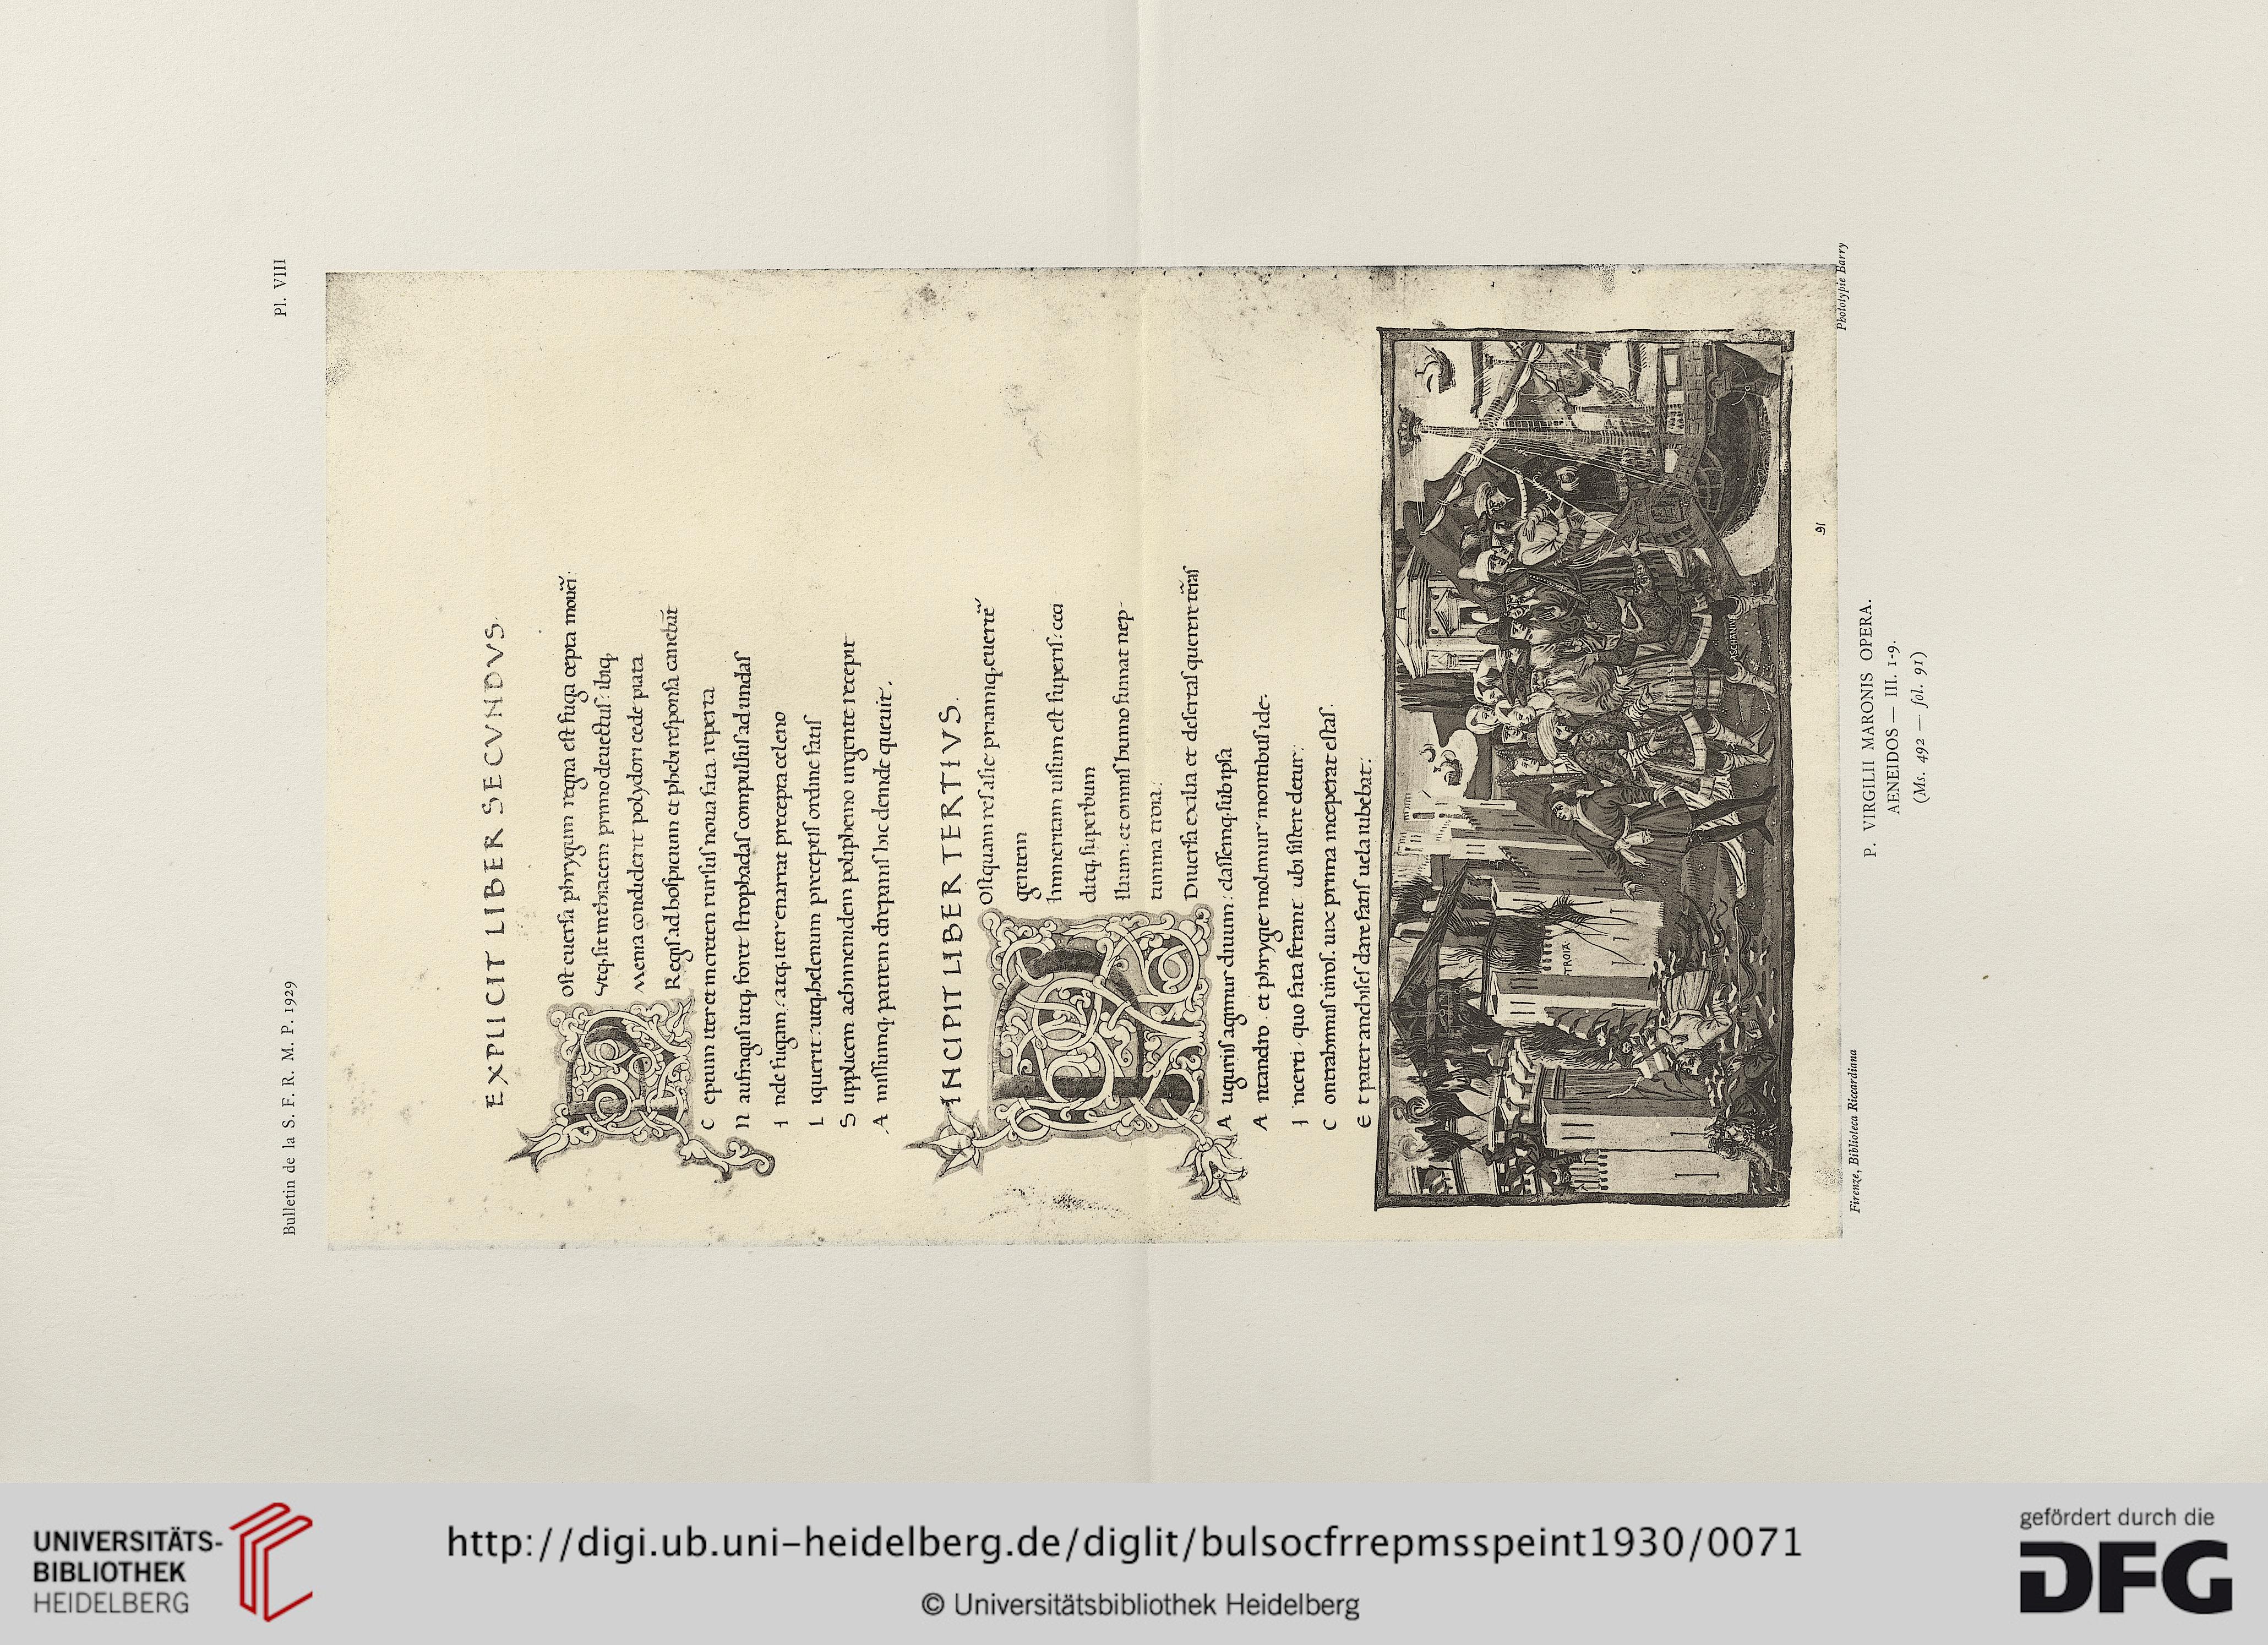 Bulletin de la S. F. R. M. P. 1929
Pl. VIII
EXPLICIT LIBER SECVNDVS.
Post euersa phrygum regna est fuga cepta moueri:
Vtq, sit inthracem primo deuectus: ibiq,
Menia condiderit polydori cede piata
Regis ad hospicium et phebi responsa canebat
Ceptum iter et meretem rursus noua fata reperta
Naufragus utq, foret strophadas compulsus ad undas
Inde fugam: atq, iter enarrat precepta celeno
Liquerit: utq, helenum preceptis ordine fatis
Supplicem achimenidem poliphemo urgente recepit
Amissumq, patrem drepanis hic deinde queuit.
INCIPIT LIBER TERTIVS.
Postquam res asie priamiq, euertere
gentem
Immeritam uisum est superis: ceci
ditq, superbum
Ilium. et omnis humo fumat nep-
tunnia troia:
Diuersa exilia et desertas querere terras
Auguriis agimur diuum: classemq, sub ipsa
Antandro. et phrygie molimur montibus ide.
Incerti. quo fata ferant. ubi sistere detur:
Contrahimus uiros. uix prima inceperat estas.
Et pater anchises dare fatis uela iubebat:
TROIA
ASCHANIVS
91
Firenze, Biblioteca Riccardiana
Phototypie Barry
P. VIRGILII MARONIS OPERA.
AENEIDOS — III. 1-9.
(Ms. 492 — fol. 91)
UNIVERSITÄTS-
BIBLIOTHEK
HEIDELBERG
http://digi.ub.uni-heidelberg.de/diglit/bulsocfrrepmsspeint1930/0071
© Universitätsbibliothek Heidelberg
gefördert durch die
DFG